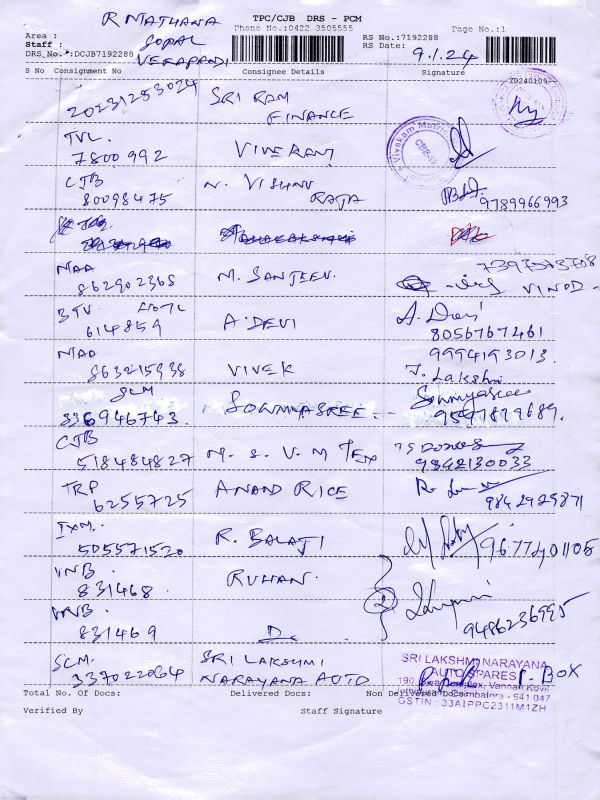 R MATHANA
GOPAL
VEERAPANDI
TPC/CJB DRS - PCM
Phone No:0422 3505555
Page No.:1
Area :
Staff :
DRS No.:DCJB7192288
RS No.:7192288
RS Date: 9.1.24
S No Consignment No Consignee Details Signature
20240109
20231253024 SRI RAM
FINANCE
TVL.
7800992 VIVEKANT
CJB
80098475 N. VISHNU
RAJA 9789966993
MAA
862902368 M. SANJEEV. 7397373708
VINOD -
BTV
614859 A. DEVI A. Devi
8056767461
MAA
863215938 VIVEK 9994193013.
T. Lakshmi
SCM
336946743. SOWMYASREE. Sowmyasree
9597899689.
CJB
518484827 M. S. V. M Tex
9842130033
TRP
6255725 ANAND RICE
9842925871
IXM.
505571520 R. BALAJI 9677401105
VNB
831468. RUHAN.
VNB
831469 D. 2
9486236995
SCM.
337022064 SRI LAKSHMI
NARAYANA AUTO
SRI LAKSHMI NARAYANA
AUTO SPARES
Coimbatore - 641 047
GSTIN : 33AIPPC2311M1ZH
1. BOX
Total No. Of Docs: Delivered Docs: Non Delivered Docs:
Verified By Staff Signature